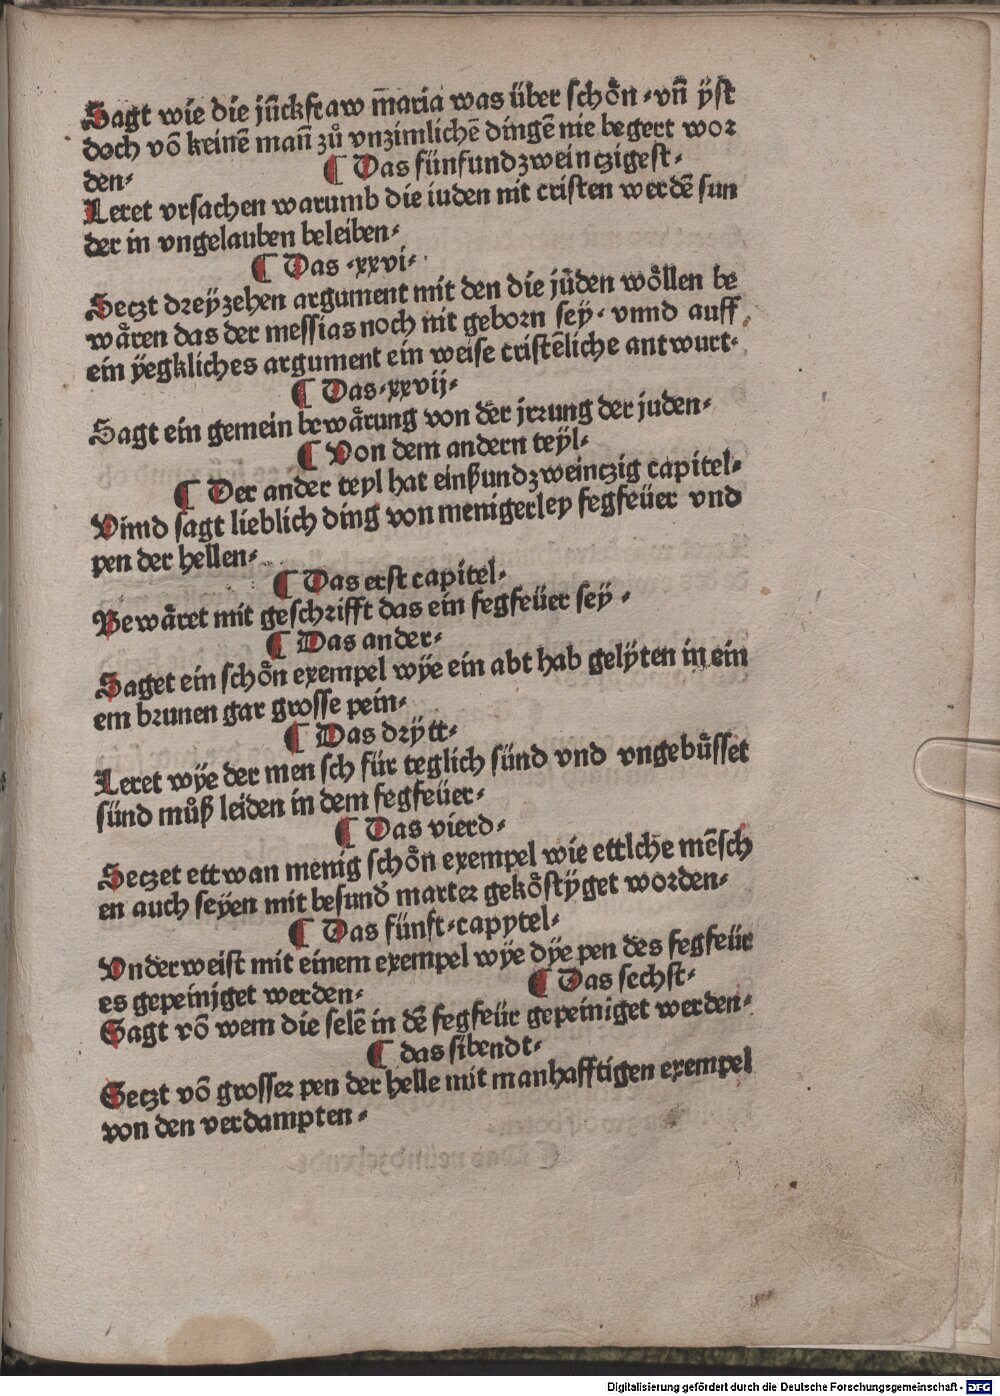 Sagt wie die jūckfraw m̄aria was über schoͤn ⸗ vn̄ ÿst
doch vō keinē man̄ zů vnzimlichē dingē nie begert wor
den⸗ ¶ Das fünfundzweinczigest⸗
Leret vrsachen warumb die iuden nit cristen werdē sun
der in vngelauben beleiben⸗
¶ Das ⸗xxvi⸗
Seczt dreÿzehen argument mit den die jüden woͤllen be
waͤren das der messias noch nit geborn sey⸗ vnnd auff
ein ÿegkliches argument ein weise cristēliche antwurt⸗
¶ Das⸗xxvij⸗
Sagt ein gemein bewaͤrung von der jrrung der juden⸗
¶ Von dem andern teÿl⸗
¶ Der ander teyl hat einßundzweinczig capitel⸗
Vnnd sagt lieblich ding von menigerley fegfeüer vnd
pen der hellen⸗
¶ Das erst capitel⸗
Bewaͤret mit geschrifft das ein fegfeüer seÿ ⸗
¶ Das ander⸗
Saget ein schoͤn exempel wÿe ein abt hab gelÿten in ein
em brunen gar grosse pein⸗
¶ Das drÿtt⸗
Leret wÿe der men sch für teglich sünd vnd vngebůsset
sünd můß leiden in dem fegfeüer⸗
¶ Das vierd⸗
Seczet ettwan menig schoͤn exempel wie ettlche mēsch
en auch seÿen mit besunđ marter gekoͤstÿget worden⸗
¶ Das fünft⸗capytel⸗
Vnderweist mit einem exempel wÿe dÿe pen des fegfeür
es gepeiniget werden⸗ ¶ Das sechst⸗
Sagt vō wem die selē in dē fegfeür gepeiniget werden⸗
¶ das sibendt⸗
Seczt vō grosser pen der helle mit manhafftigen exempel
von den verdampten⸗
Digitalisierung gefördert durch die Deutsche Forschungsgemeinschaft - DFG